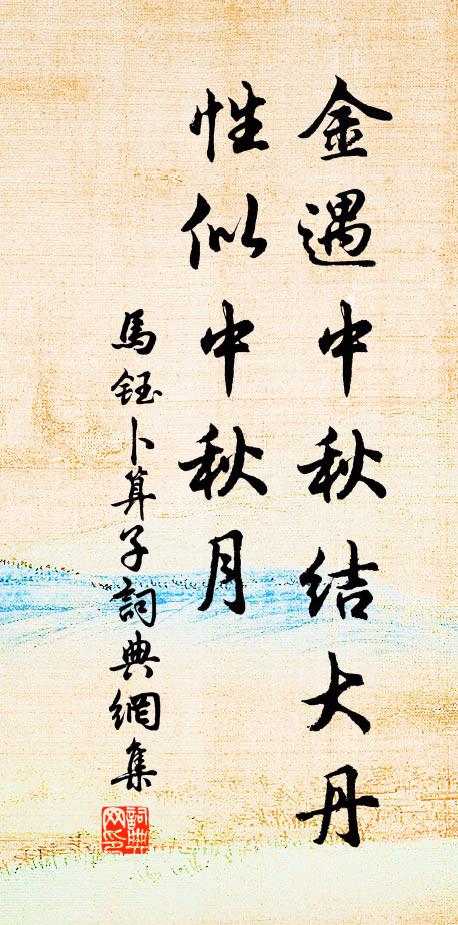 金遇中秋結大丹
性似中秋月
馬鈺卜算子詞典網集
詞典网印